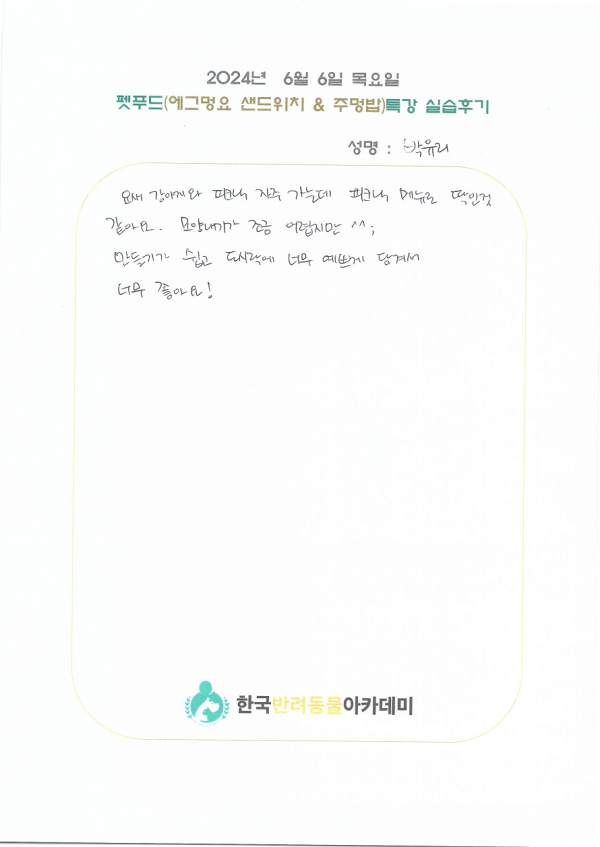 2024년 6월 6일 목요일
펫푸드(에그멍요 샌드위치 & 주멍밥)특강 실습후기
성명 : 박유리
요새 강아지와 피크닉 자주 가는데 피크닉 메뉴로 딱인것
같아요. 모양내기가 조금 어렵지만 ^^;
만들기가 쉽고 도시락에 너무 예쁘게 담겨서
너무 좋아요!
한국반려동물아카데미